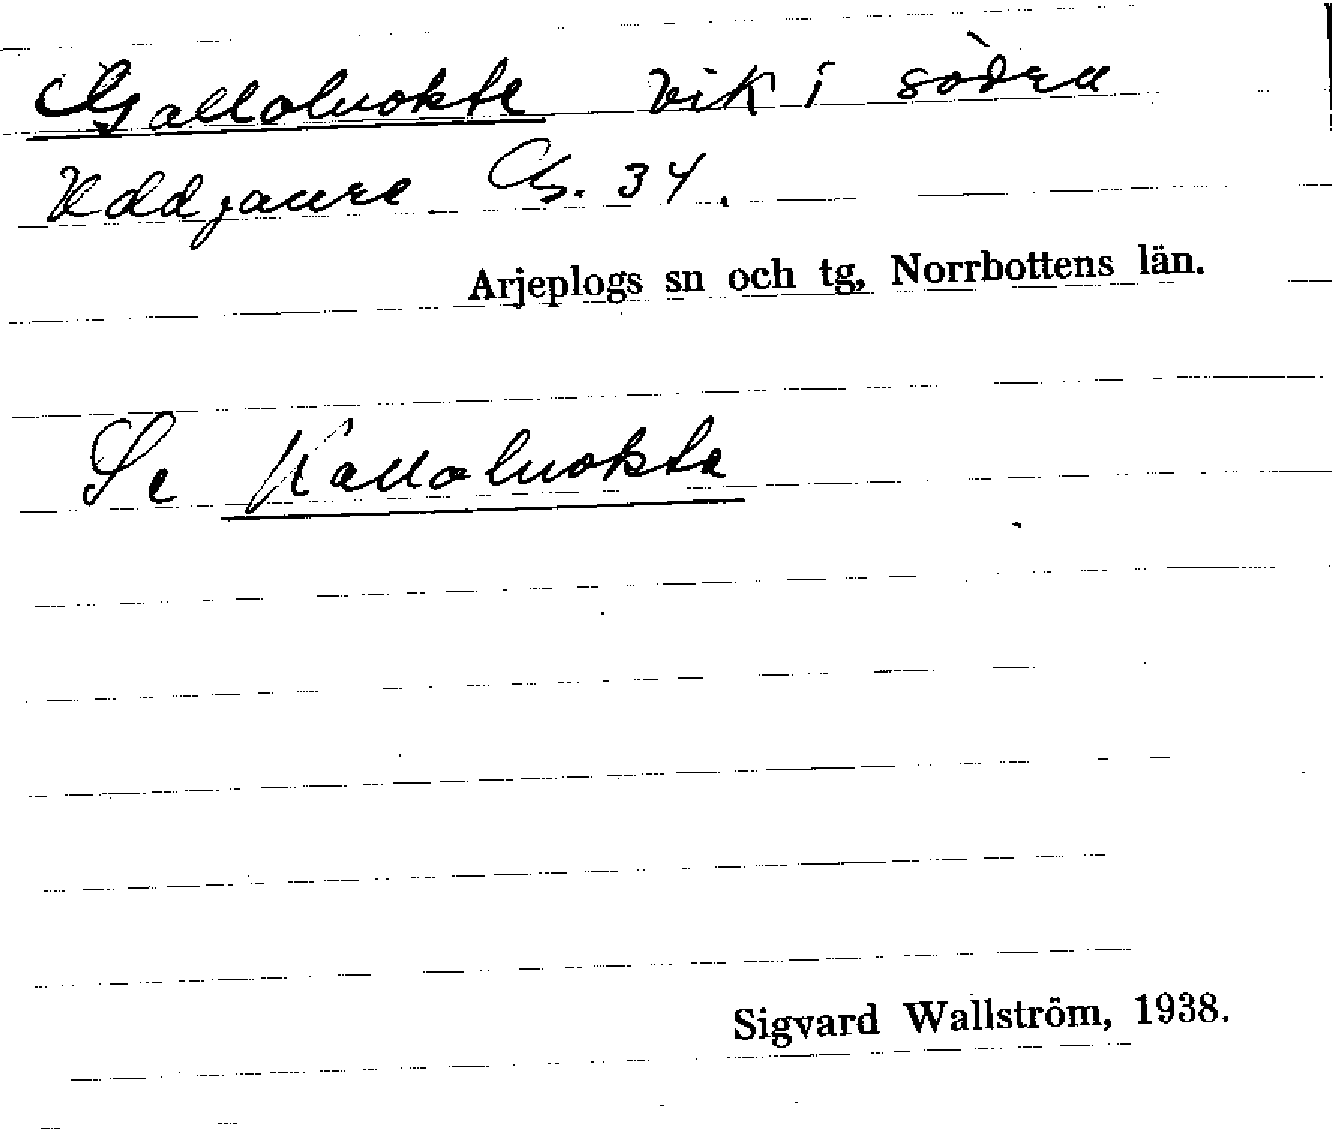 Galloluokte vik i södra
Uddjaure G. 34.
Arjeplogs sn och tg, Norrbottens län.
Se Kalloluokta
Sigvard Wallström, 1938.